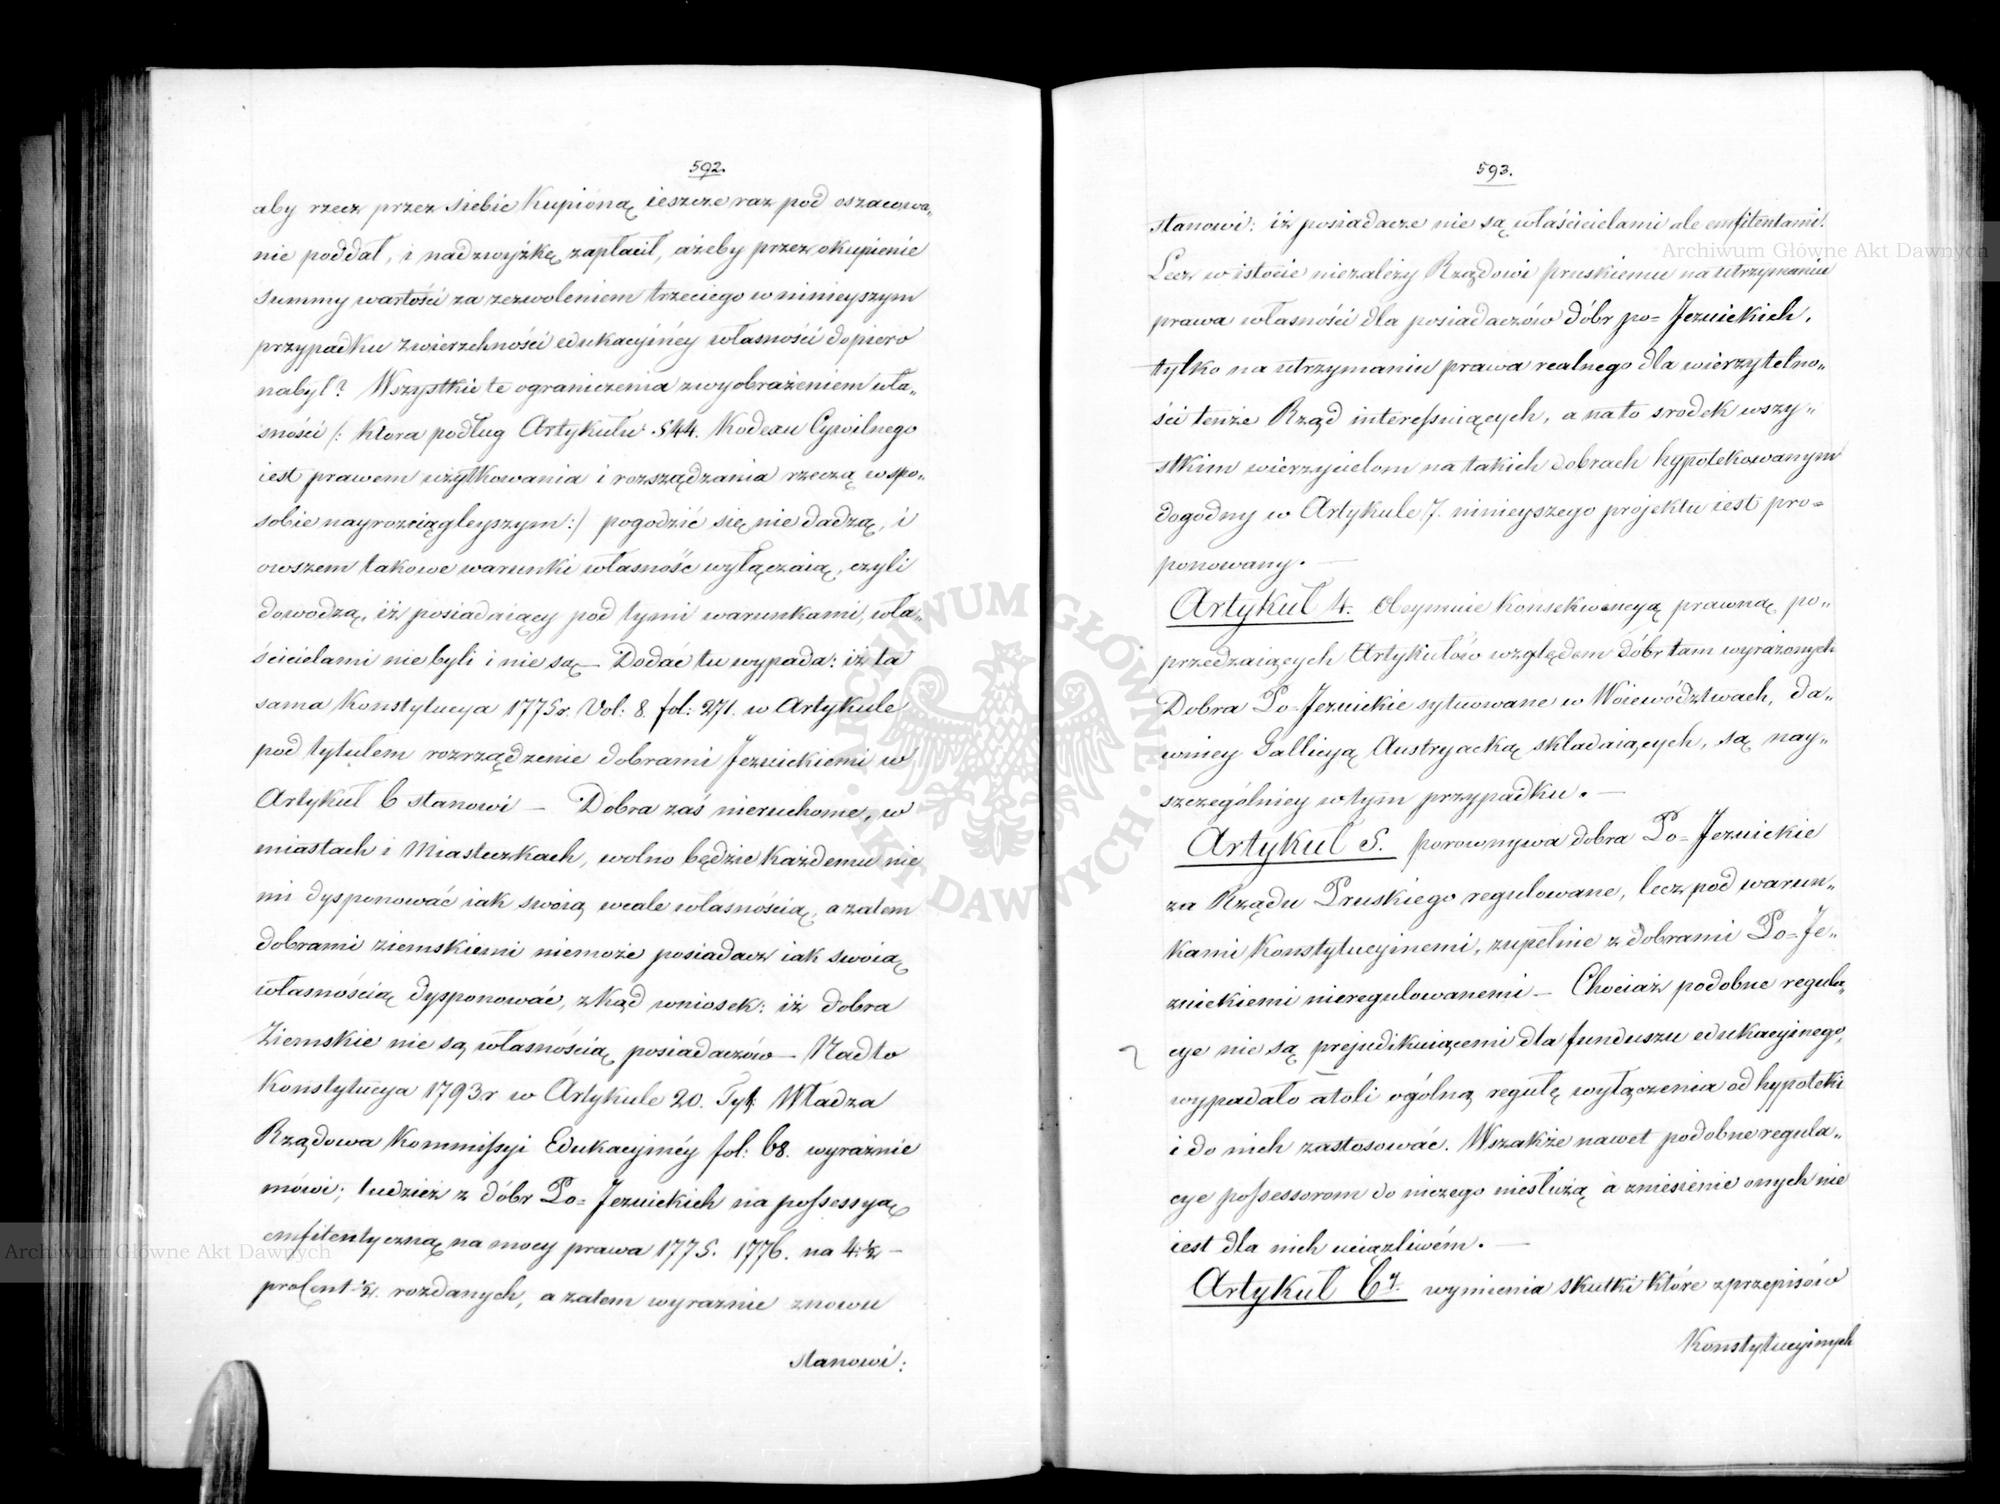 592.
aby rzecz przez siebie kupioną ieszcze raz pod oszacowa„
nie poddał, i nadzwyżkę zapłacił, ażeby przez okupienie
summy wartości za zezwoleniem trzeciego w ninieyszym
przypadku zwierzchności edukacyinéy własności dopiero
nabył? Wszystkie te ograniczenia z wyobrażeniem wła„
sności /: która podług Artykułu 544. Kodexu Cywilnego
iest prawem użytkowania i rozrządzania rzeczą w spo„
sobie nayrozciągleyszym :/ pogodzić się nie dadzą, i
owszem takowe warunki własność wyłączaią, czyli
dowodzą, iż posiadaiący pod tymi warunkami, wła„
ścicielami nie byli i nie są — Dodać tu wypada: iż ta
sama Konstytucya 1775r. Vol: 8. fol: 271. w Artykule
pod tytułem rozrządzenie dobrami Jezuickiemi w
Artykuł 6 stanowi — Dobra zaś nieruchome, w
miastach i Miasteczkach, wolno będzie każdemu nie
mi dysponować iak swoią wcale własnością, a zatem
dobrami ziemskiemi niemoże posiadacz iak swoią
własnością dysponować, zkąd wniosek: iż dobra
Ziemskie nie są własnością posiadaczów — Nadto
Konstytucya 1793r w Artykule 20. Tyt: Władza
Rządowa Kommissyi Edukacyinéy fol: 68. wyraźnie
mówi; tudzież z dóbr Po=Jezuickich na possessyą
emfiteutyczną na mocy prawa 1775. 1776. na 4½ —
procent rozdanych, a zatem wyraźnie znowu
stanowi:
593.
stanowi: iż posiadacze nie są właścicielami ale emfiteutami.
Lecz w istocie niezależy Rządowi Pruskiemu na utrzymaniu
prawa własności dla posiadaczów dóbr po=Jezuickich,
tylko na utrzymaniu prawa realnego dla wierzytelno„
ści tenże Rząd interessuiących, a na to srodek wszy„
stkim wierzycielom na takich dobrach hypotekowanym
dogodny w Artykule 7. ninieyszego projektu iest pro=
ponowany. —
Artykuł 4. Obeymuie konsekwencyą prawną po„
przedzaiących Artykułów względem dóbr tam wyrażonych
Dobra Po=Jezuickie sytuowane w Woiewództwach, da„
wniey Gallicyą Austryacką składaiących, są nay„
szczególniey w tym przypadku. —
Artykuł 5. porownywa dobra Po=Jezuickie
za Rządu Pruskiego regulowane, lecz pod warun„
kami Konstytucyinemi, zupełnie z dobrami Po=Je„
zuickiemi nieregulowanemi — Chociaż podobne regula„
cye nie są prejudikuiącemi dla funduszu edukacyinego,
wypadało atoli ogólną regułę wyłączenia od hypoteki
i do nich zastosować. Wszakże nawet podobne regula„
cye possessorom do niczego niesłużą a zniesienie onych nie
iest dla nich uciążliwém. —
Artykuł 6y. wymienia skutki które z przepisów
Konstytucyinych
Archiwum Główne Akt Dawnych
Archiwum Główne Akt Dawnych
ARCHIWUM GŁÓWNE
AKT DAWNYCH